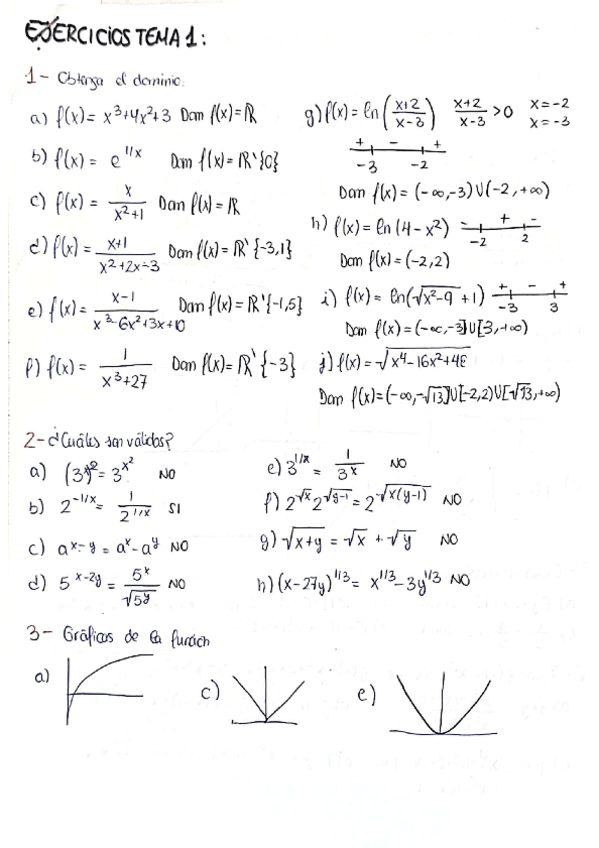 EJERCICIOS TEMA 1:
1- Obtenga el dominio:
a) f(x) = x³+4x²+3 Dom f(x) = ℝ
b) f(x) = e^(1/x) Dom f(x) = ℝ\{0}
c) f(x) = x/(x²+1) Dom f(x) = ℝ
d) f(x) = (x+1)/(x²+2x-3) Dom f(x) = ℝ\{-3,1}
e) f(x) = (x-1)/(x³-6x²+3x+10) Dom f(x) = ℝ\{-1,5}
f) f(x) = 1/(x³+27) Dom f(x) = ℝ\{-3}
g) f(x) = ln((x+2)/(x-3)) (x+2)/(x-3) > 0 x=-2
x=-3
+ - +
-3 -2
Dom f(x) = (-∞,-3)∪(-2,+∞)
h) f(x) = ln(4-x²) + -
-2 2
Dom f(x) = (-2,2)
i) f(x) = ln(√(x²-9)+1) + - +
-3 3
Dom f(x) = (-∞,-3]∪[3,+∞)
j) f(x) = √(x⁴-16x²+48)
Dom f(x) = (-∞,-√13]∪[-2,2)∪[√13,+∞)
2- ¿Cuáles son válidas?
a) (3^x)² = 3^(x²) NO
b) 2^(-1/x) = 1/2^(1/x) SI
c) a^(x-y) = a^x - a^y NO
d) 5^(x-2y) = 5^x/√(5^y) NO
e) 3^(1/x) = 1/3^x NO
f) 2^√x 2^√(y-1) = 2^√(x(y-1)) NO
g) √(x+y) = √x + √y NO
h) (x-27y)^(1/3) = x^(1/3) - 3y^(1/3) NO
3- Gráficas de la función
a) c) e)